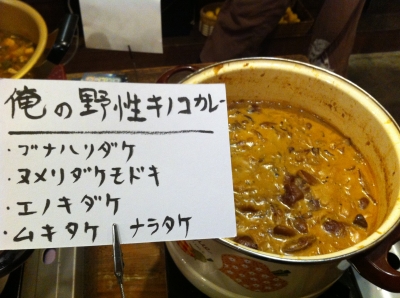 俺の野性キノコカレー
・ブナハリダケ
・ヌメリダケモドキ
・エノキダケ
・ムキタケ ナラタケ